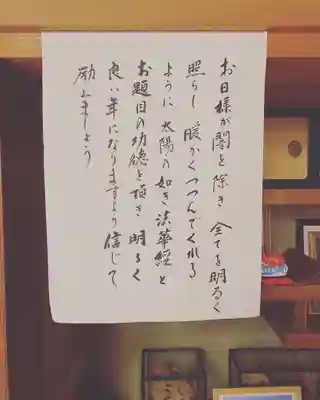 お日様が闇を除き 全てを明るく
照らし 暖かくつつんでくれる
ように 太陽の如き法華経と
お題目の功徳を頂き 明るく
良い年になりますよう信じて
励みましょう